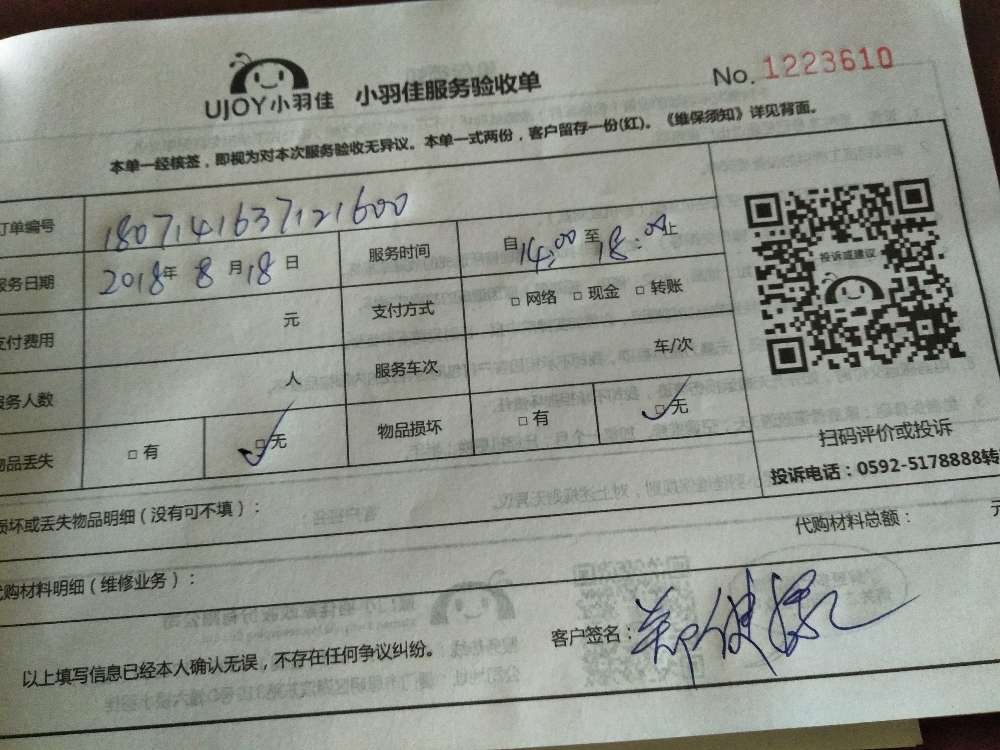 UJOY小羽佳 小羽佳服务验收单 No. 1223610
本单一经核签，即视为对本次服务验收无异议。本单一式两份，客户留存一份(红)。《维保须知》详见背面。
订单编号 180714163712160​0
服务日期 2018年 8月18日 服务时间 自14:00至18:00止
支付费用 元 支付方式 □网络 □现金 □转账
服务人数 人 服务车次 车/次
物品丢失 □有 ☑无 物品损坏 □有 ☑无
投诉或建议
扫码评价或投诉
投诉电话：0592-5178888转
损坏或丢失物品明细（没有可不填）：
代购材料总额： 元
代购材料明细（维修业务）：
以上填写信息已经本人确认无误，不存在任何争议纠纷。 客户签名：郑健